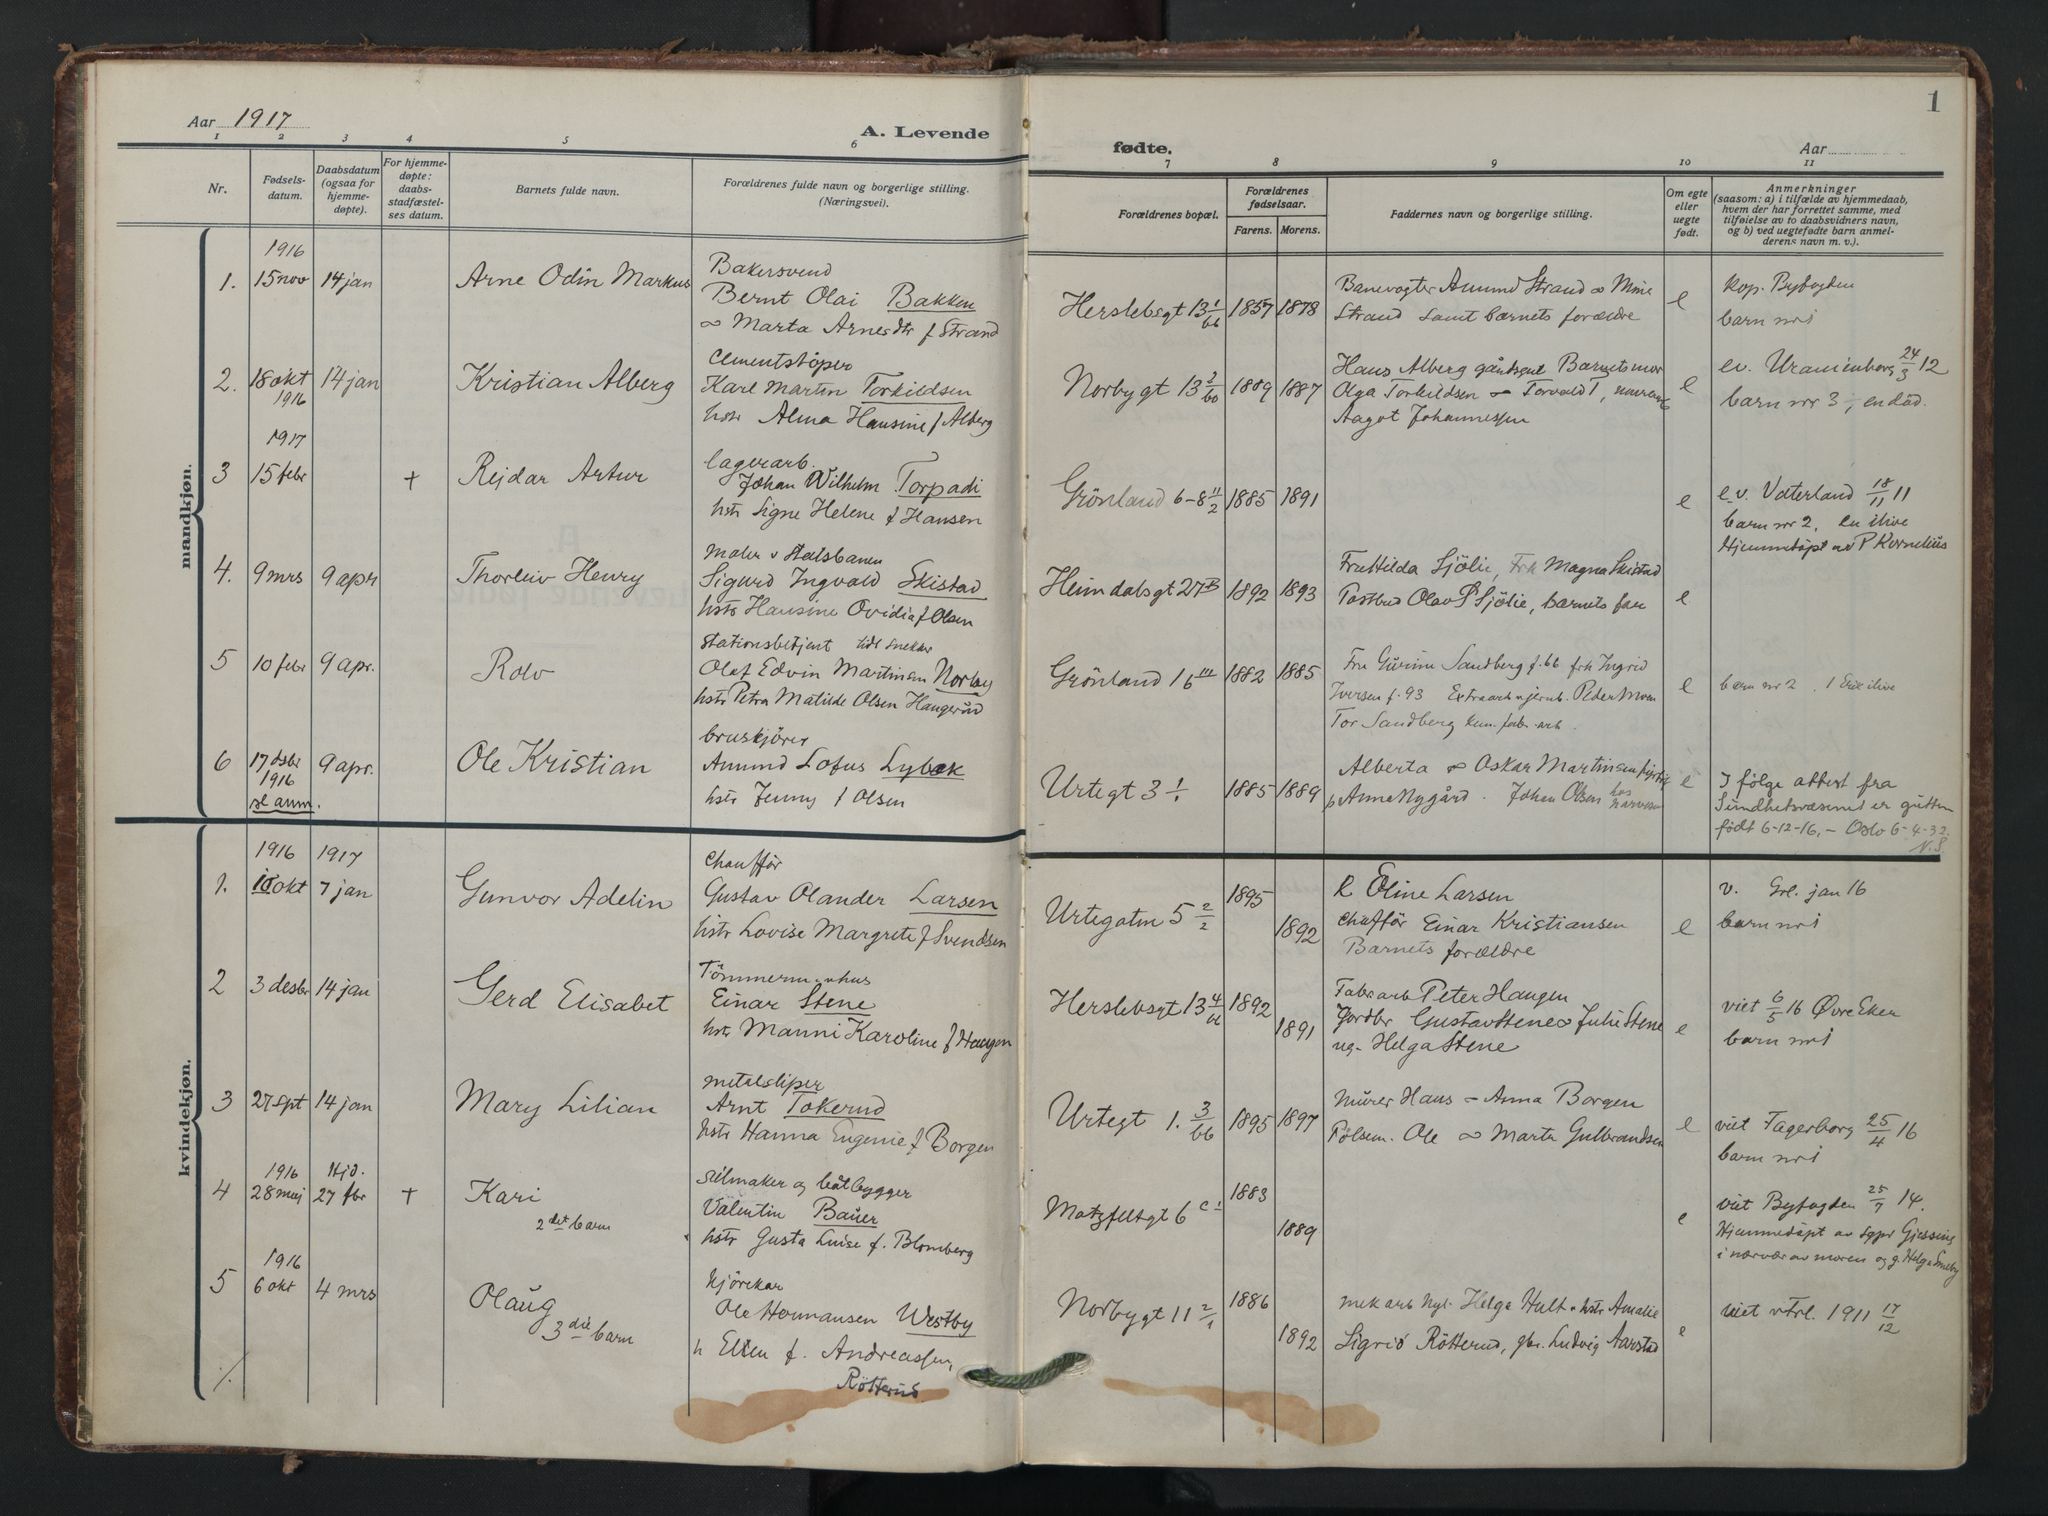 Aar 1917
A. Levende
1 2 3 4 5 6
Nr.
Fødsels-
datum.
Daabsdatum
(ogsaa for
hjemme-
døpte).
For hjemme-
døpte:
daabs-
stadfæstel-
ses datum.
Barnets fulde navn.
Forældrenes fulde navn og borgerlige stilling.
(Næringsvei).
mandkjøn.
1916
1. 15 nov 14 jan Arne Odin Markus
Bakersvend
Bernt Olai Bakken
∞ Marta Arnesdtr f Strand
2. 18 okt 14 jan Kristian Alberg
1916
Cementstöper
Karl Martin Torkildsen
hstr Alma Hansine f Alberg
1917
3 15 febr + Rejdar Artur
lagerarb.
Johan Wilhelm Torpadi
hstr Signe Helene f Hansen
4. 9 mrs 9 apr Thorleiv Henry
maler v Statsbanen
Sigurd Ingvald Skistad
hstr Hansine Ovidia f Olsen
5 10 febr 9 apr. Rolv
Stationsbetjent tidl snekker
Olaf Edvin Martinsen Norby
hstr Petra Matilde Olsen Haugerud
6 17 dsbr 9 apr. Ole Kristian
1916
se anm.
bruskjörer
Amund Lofus Lybæk
hstr Jenny f Olsen
kvindekjøn.
1916 1917
1. 18 okt 7 jan Gunvor Adelin
Chaufför
Gustav Olander Larsen
hstr Lovise Margrete f Svendsen
2 3 desbr 14 jan Gerd Elisabet
Tömmerm.
Einar Stene
hstr Manni Karoline f Haugen
3 27 spt 14 jan Mary Lilian
metalsliper
Arnt Tokerud
hstr Hanna Eugenie f Borgen
1916 Hjd.
4 28 maj 27 fbr + Kari
2det barn
seilmaker og båtbygger
Valentin Bauer
hstr Gusta Luise f. Blomberg
1916
5 6 okt 4 mrs Olaug
3die barn
kjörekar
Ole Hermansen Westby
h Ellen f. Andreassen,
Rötterud
1
fødte.
Aar
7 8 9 10 11
Forældrenes bopæl.
Forældrenes
fødselsaar.
Farens. Morens.
Faddernes navn og borgerlige stilling.
Om egte
eller
uegte
født.
Anmerkninger
(saasom: a) i tilfælde av hjemmedaab,
hvem der har forrettet samme, med
tilføielse av to daabsvidners navn,
og b) ved uegtefødte barn anmel-
derens navn m. v.).
Herslebsgt 13 1/bb 1857 1878
Banevogter Amund Strand ∞ Mine
Strand samt barnets forældre
e
kop. Byfogden
barn nr 1
Norbygt 13 2/bb 1889 1887
Hans Alberg Barnets mor
Olga Torkildsen ∞ Torvald T,
Aagot Johannessen
e
ev. Uranienborg 24/3 12
barn nr 3, en död.
Grönland 6-8 11/2 1885 1891
e
e.v. Vaterland 18/11 11
barn nr 2. en ilive
Hjemmedöpt av P Kornelius
Heimdalsgt 27 B 1892 1893
Fru Hilda Sjölie, Frk Magna Skistad
Postbud Olav P Sjölie, barnets far
e
Grönland 16 III 1882 1885
Fru Gurine Sandberg f. 66 frk Ingrid
Iversen f. 93 Extraarb v jernb. Peder Moen
Tor Sandberg
e
barn nr 2. 1 ilive
Urtegt 3 1/1 1885 1889
Alberta ∞ Oskar Martinsen
p Anne Nygård. Johan Olsen hos
e
I følge attest fra
Sundhetsvæsenet er gutten
født 6-12-16. – Oslo 6-4-32.
N.S.
Urtegaten 5 2/2 1895
1892
Eline Larsen
Chafför Einar Kristiansen
Barnets forældre
e
v. Grl. jan 16
barn nr 1
Herslebsgt 13 4/bb 1892
1891
Fabrarb Peter Haugen
Jordbr Gustav Stene ∞ Julie Stene
ug. Helga Stene
e
viet 6/5 16 Øvre Eker
barn nr 1
Urtegt 1. 3/bb 1895 1897
murer Hans ∞ Anna Borgen
Pölsem. Ole ∞ Marta Gulbrandsen
e
viet Fagerborg 25/4 16
barn nr 1
Motzfeltgt 6 c 1 1883
1889
e
viet Byfogden 25/7 14.
Hjemmedöpt av sgpr Gjessing
i nærvær av moren og g. Helga Smeby
Norbygt 11 2/1 1886
1892
mek arb Helga Hult hstr Amalie
Sigrid Rötterud, gbr. Ludvig Aarstad
e
viet v Frl. 1911 17/12